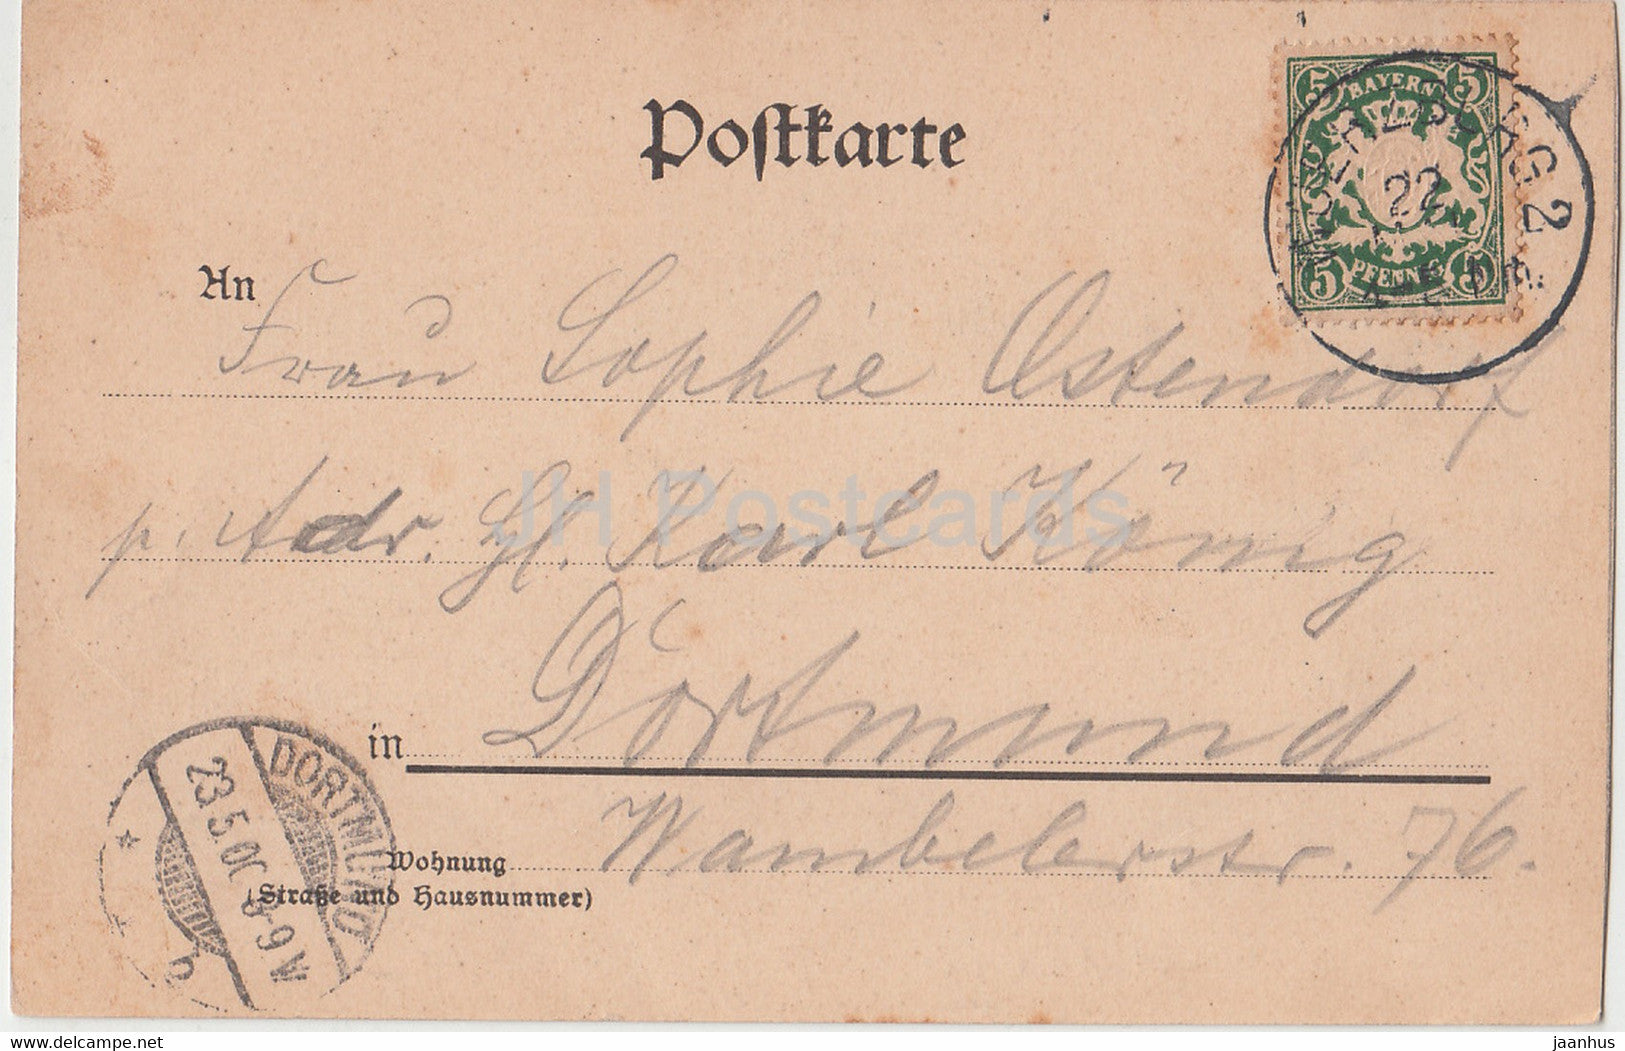 Postkarte
5 BAYERN 5
5 PFENNIG 5
WUERZBURG 2
22
An Frau Sophie Ostendorf
p. Adr. Hl. Karl König
in Dortmund
Wohnung Wambelerstr. 76.
(Straße und Hausnummer)
DORTMUND
23.5.00 8-9 V
* * b
JH Postcards
delcampe.net
jaanhus